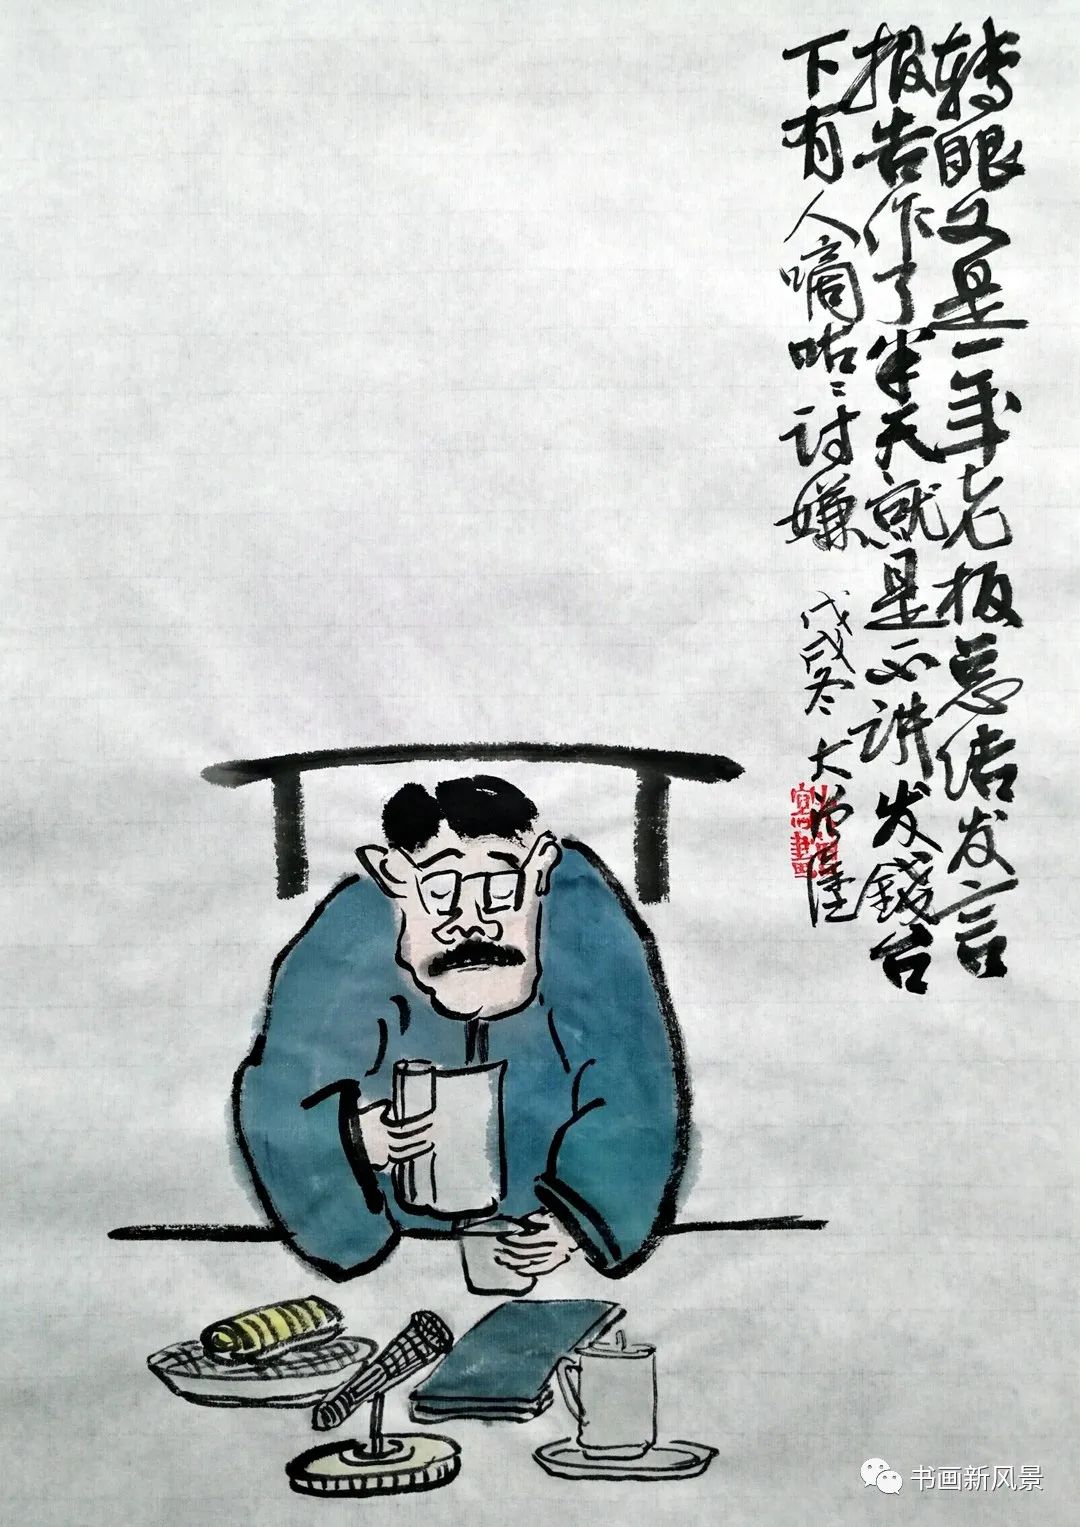 转眼又是一年老板总结发言
报告作了半天就是不讲发錢台
下有人嘀咕〻讨嫌
戊戌冬 大
寫畫
书画新风景